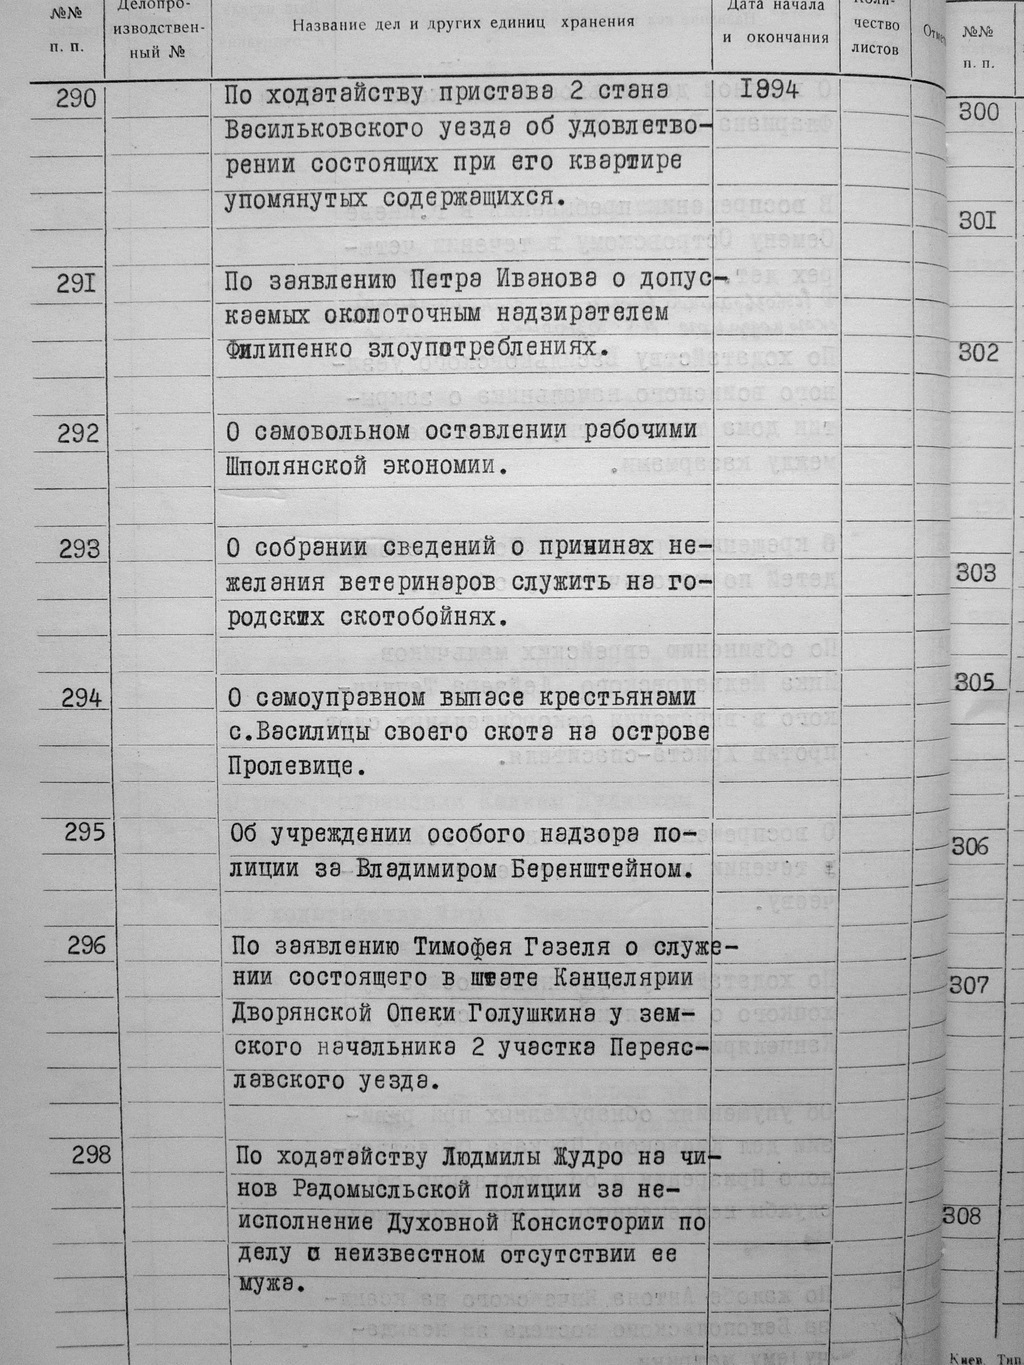 №№
п. п.
Делопро-
изводствен-
ный №
Название дел и других единиц хранения
Дата начала
и окончания
Коли-
чество
листов
290
По ходатайству пристава 2 стана
1894
Васильковского уезда об удовлетво-
рении состоящих при его квартире
упомянутых содержащихся.
291
По заявлению Петра Иванова о допус-
каемых околоточным надзирателем
Филипенко злоупотреблениях.
292
О самовольном оставлении рабочими
Шполянской экономии.
293
О собрании сведений о причинах не-
желания ветеринаров служить на го-
родских скотобойнях.
294
О самоуправном выпасе крестьянами
с.Василицы своего скота на острове
Пролевице.
295
Об учреждении особого надзора по-
лиции за Владимиром Беренштейном.
296
По заявлению Тимофея Газеля о служе-
нии состоящего в штате Канцелярии
Дворянской Опеки Голушкина у зем-
ского начальника 2 участка Переяс-
лавского уезда.
298
По ходатайству Людмилы Жудро на чи-
нов Радомысльской полиции за не-
исполнение Духовной Консистории по
делу о неизвестном отсутствии ее
мужа.
№№
п. п.
300
301
302
303
305
306
307
308
Киев. Тип.